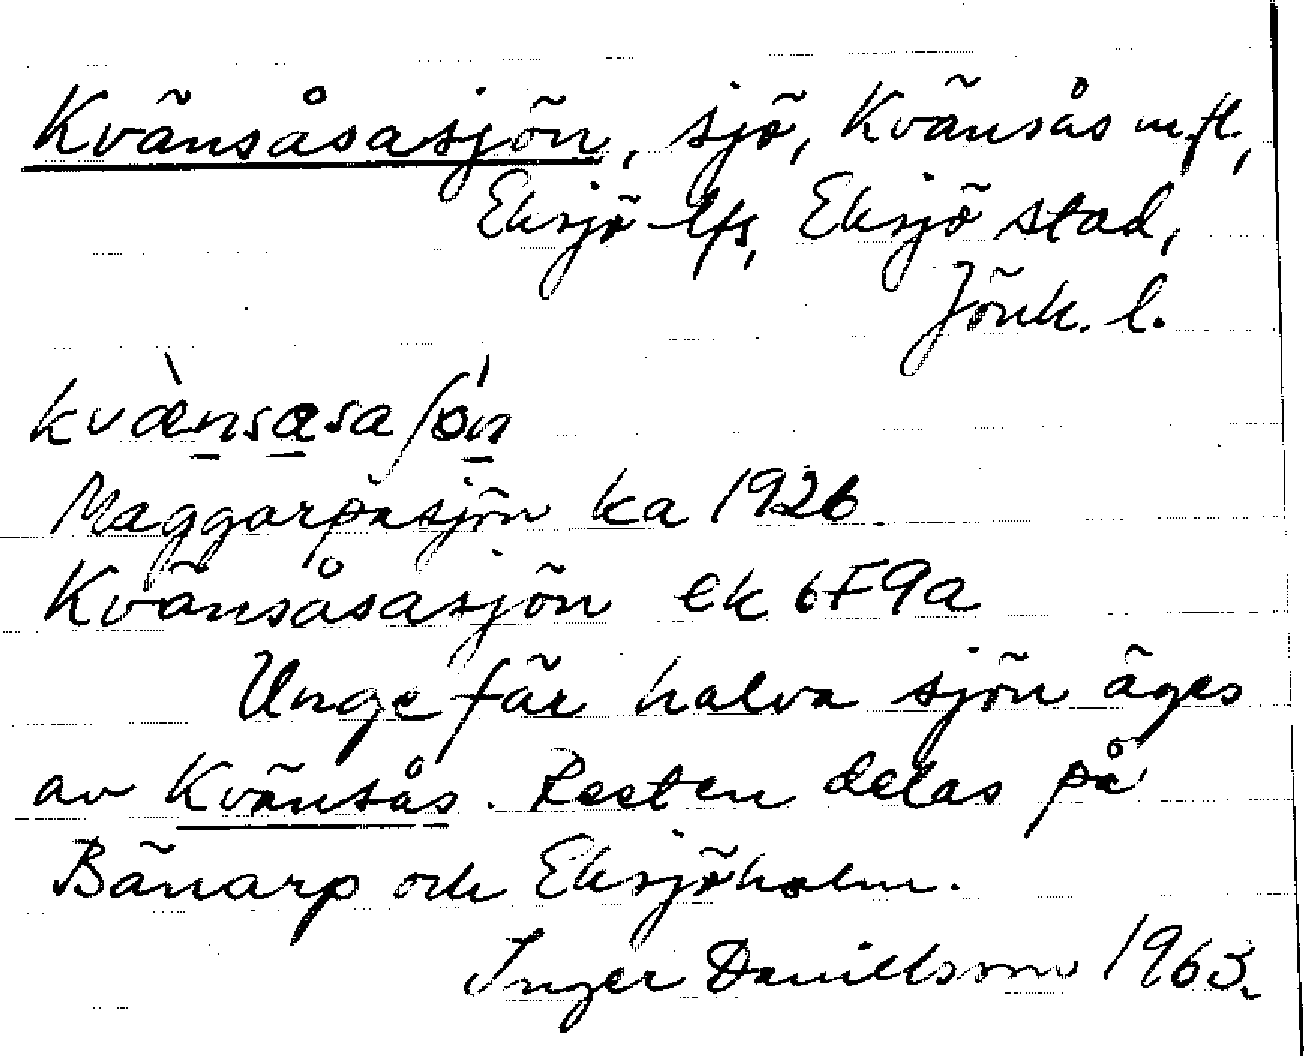 Kvänsåsasjön, sjö, Kvänsås m.fl.,
Eksjö lfs, Eksjö stad,
Jönk. l.
kvæ̀nsasaʃö́n
Maggarpasjön ka 1926
Kvänsåsasjön ek 6F9a
Ungefär halva sjön äges
av Kvänsås. Resten delas på
Bänarp och Eksjöholm.
Inger Danielsson 1963.